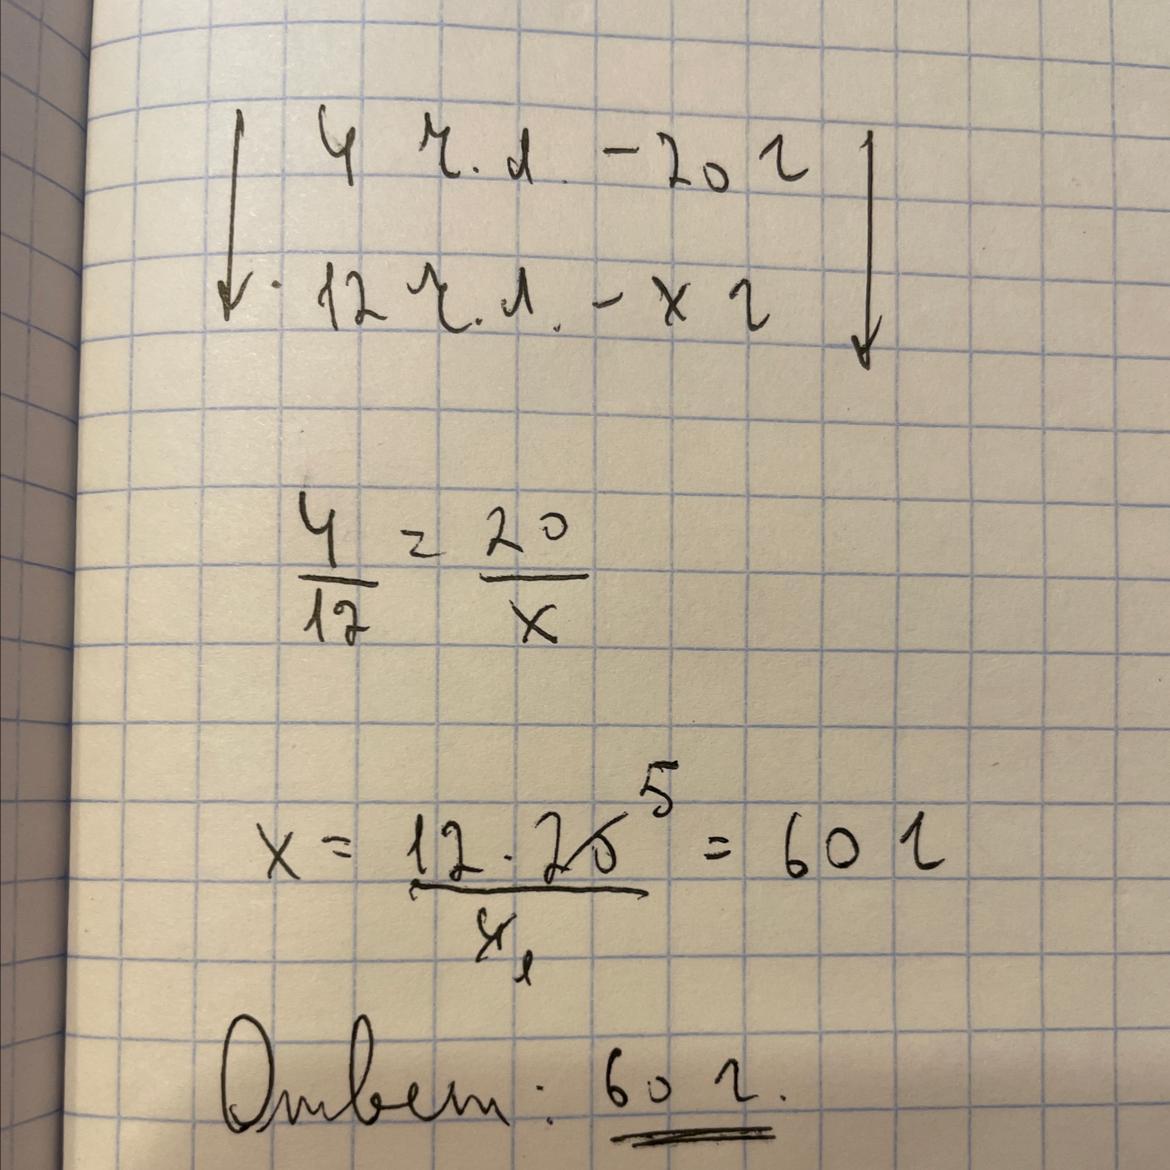 4 ч.л. - 20 г
12 ч.л. - x г
4/12 = 20/x
x = 12 · 20 5 / 4 1 = 60 г
Ответ: 60 г.